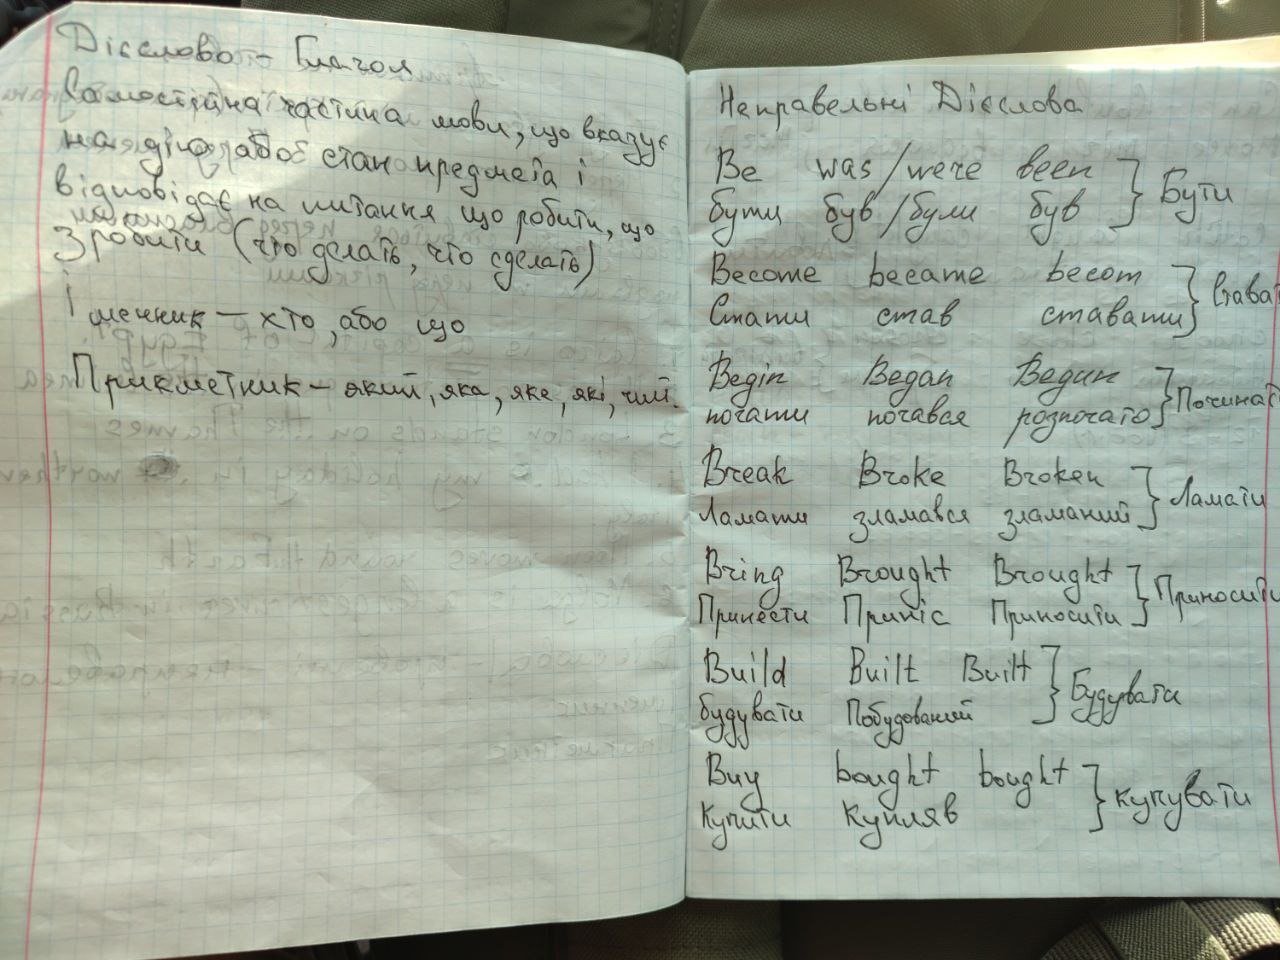 Дієслово - Глагол
Самостійна частина мови, що вказує
на дію або стан предмета і
відповідає на питання що робити, що
зробити (что делать, что сделать)
Іменник — хто, або що
Прикметник — який, яка, яке, які, чий.
Неправельні Дієслова
Be was/were been } Бути
бути був/були був
Become became becom } Стават
Стати став ставати
Begin Began Begun } Починат
почати почався розпочато
Break Broke Broken } Ламати
Ламати зламався зламаний
Bring Brought Brought } Приносити
Принести Приніс Приносити
Build Built Built } Будувати
будувати Побудований
Buy bought bought } купувати
купити купляв